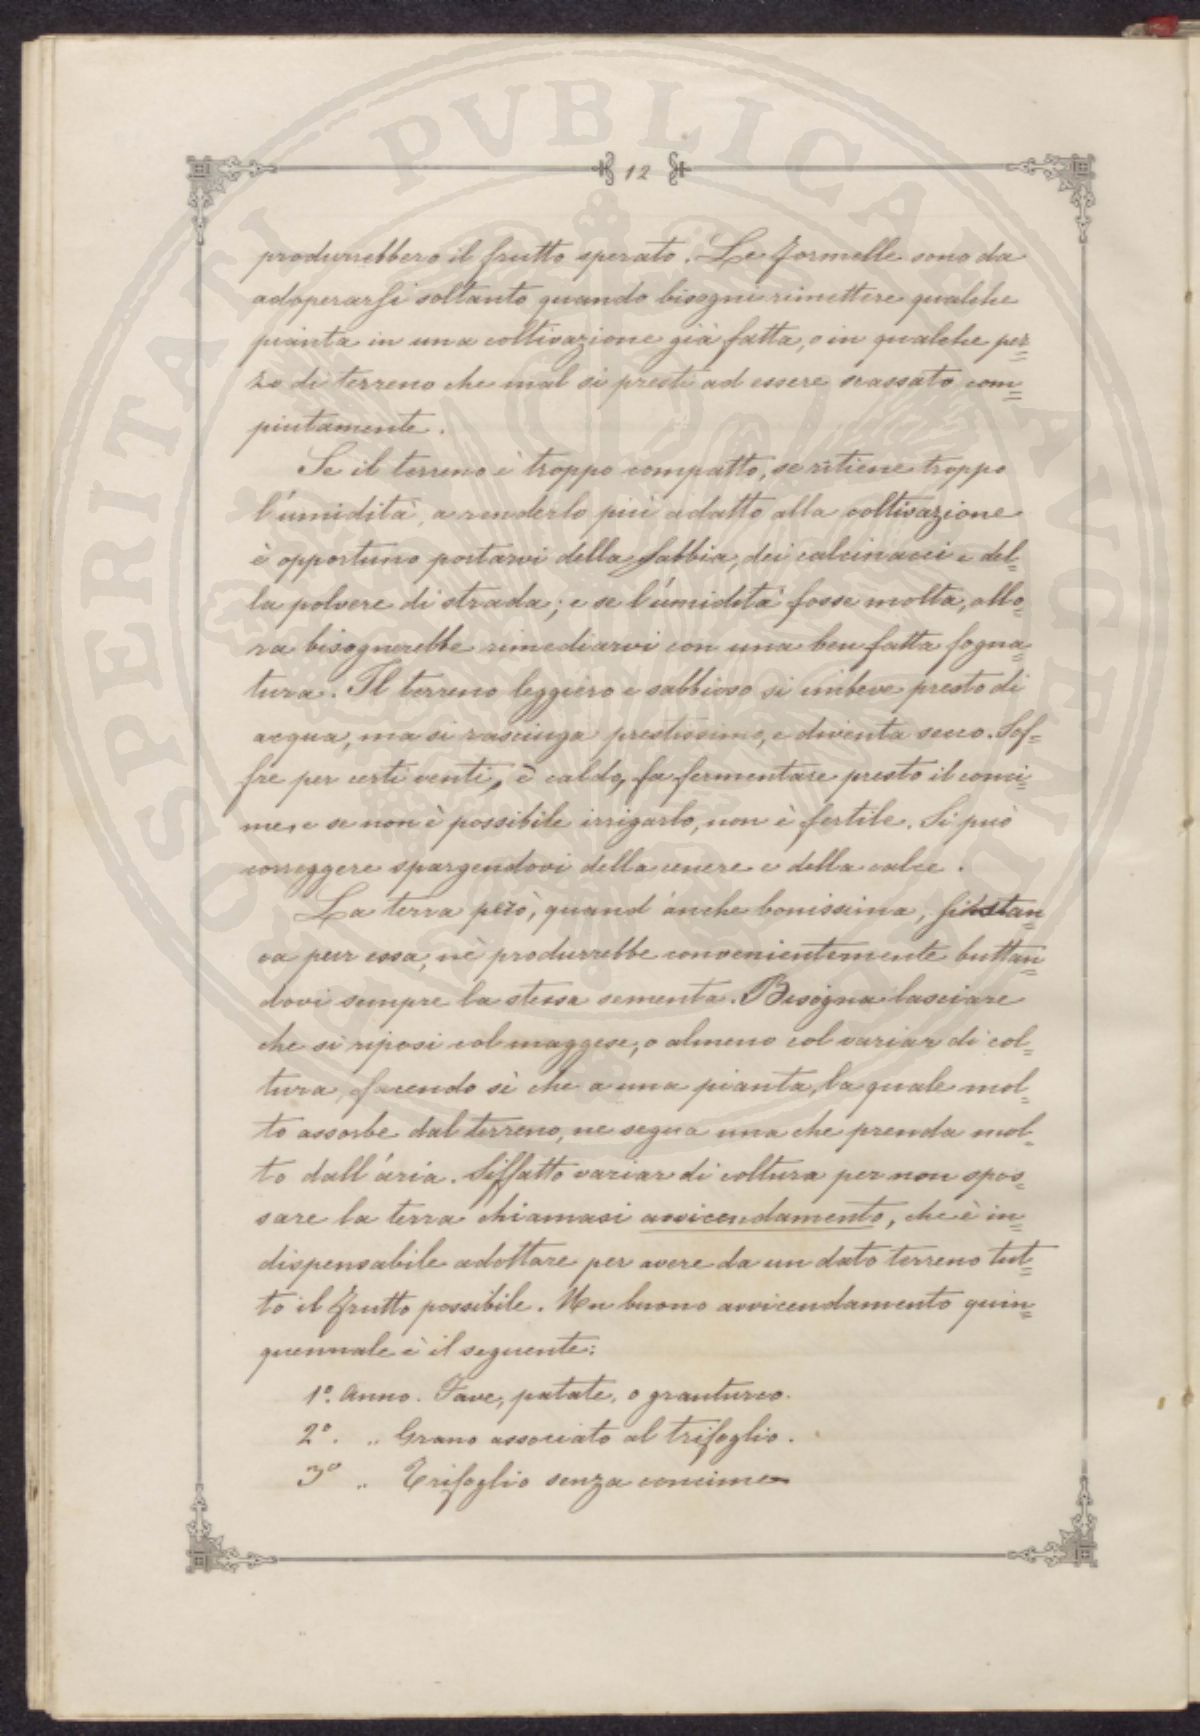 12
produrrebbero il frutto sperato. Le formelle sono da
adoperarsi soltanto quando bisogni rimettere qualche
pianta in una coltivazione già fatta, o in qualche pez=
zo di terreno che mal si presti ad essere scassato com=
piutamente.
Se il terreno è troppo compatto, se ritiene troppo
l'umidità, a renderlo più adatto alla coltivazione
è opportuno portarvi della sabbia, dei calcinacci e del=
la polvere di strada; e se l'umidità fosse molta, allo=
ra bisognerebbe rimediarvi con una ben fatta fogna=
tura. Il terreno leggiero e sabbioso si imbeve presto di
acqua, ma si rasciuga prestissimo, e diventa secco. Sof=
fre per certi venti, è caldo, fa fermentare presto il conci=
me, e se non è possibile irrigarlo, non è fertile. Si può
correggere spargendovi della cenere e della calce.
La terra però, quand'anche bonissima, si stan=
ca pur essa, nè produrrebbe convenientemente buttan=
dovi sempre la stessa sementa. Bisogna lasciare
che si riposi col maggese, o almeno col variar di col=
tura, facendo sì che a una pianta, la quale mol=
to assorbe dal terreno, ne segua una che prenda mol=
to dall'aria. Siffatto variar di coltura per non spos=
sare la terra chiamasi avvicendamento, che è in=
dispensabile adottare per avere da un dato terreno tut=
to il frutto possibile. Un buono avvicendamento quin=
quennale è il seguente:
1º. Anno. Fave, patate, o granturco.
2º. „ Grano associato al trifoglio.
3º „ Trifoglio senza concime
SPERITATI PVBLICAE AVGENDAE